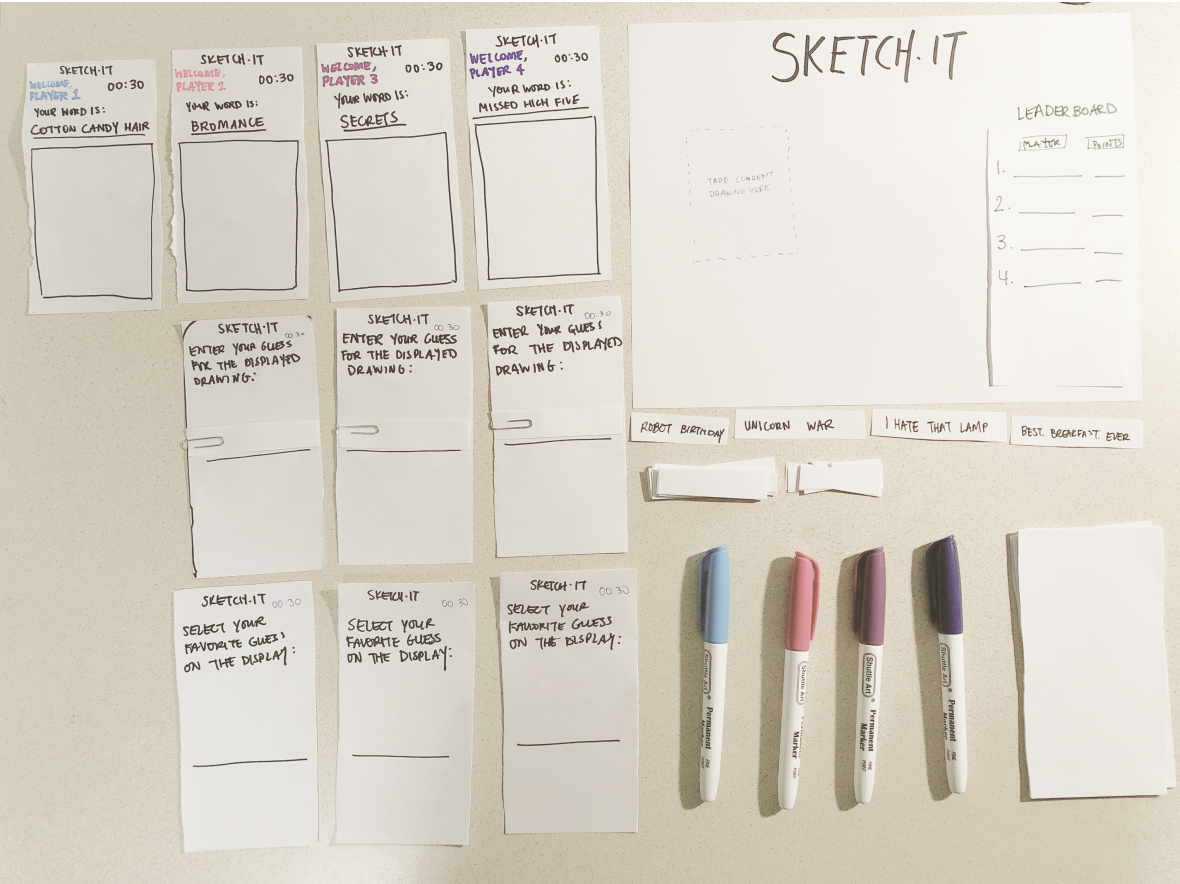 SKETCH·IT
WELCOME,
PLAYER 1
00:30
YOUR WORD IS:
COTTON CANDY HAIR
SKETCH·IT
WELCOME,
PLAYER 2
00:30
YOUR WORD IS:
BROMANCE
SKETCH·IT
WELCOME,
PLAYER 3
00:30
YOUR WORD IS:
SECRETS
SKETCH·IT
WELCOME,
PLAYER 4
00:30
YOUR WORD IS:
MISSED HIGH FIVE
SKETCH·IT
TAPE CURRENT
DRAWING HERE
LEADERBOARD
PLAYER POINTS
1.
2.
3.
4.
SKETCH·IT
00:30
ENTER YOUR GUESS
FOR THE DISPLAYED
DRAWING:
SKETCH·IT
00:30
ENTER YOUR GUESS
FOR THE DISPLAYED
DRAWING:
SKETCH·IT
00:30
ENTER YOUR GUESS
FOR THE DISPLAYED
DRAWING:
ROBOT BIRTHDAY
UNICORN WAR
I HATE THAT LAMP
BEST. BREAKFAST. EVER
SKETCH·IT
00:30
SELECT YOUR
FAVORITE GUESS
ON THE DISPLAY:
SKETCH·IT
00:30
SELECT YOUR
FAVORITE GUESS
ON THE DISPLAY:
SKETCH·IT
00:30
SELECT YOUR
FAVORITE GUESS
ON THE DISPLAY:
Shuttle Art
Permanent
Marker
FINE
POINT
Shuttle Art
Permanent
Marker
FINE
POINT
Shuttle Art
Permanent
Marker
FINE
POINT
Shuttle Art
Permanent
Marker
FINE
POINT